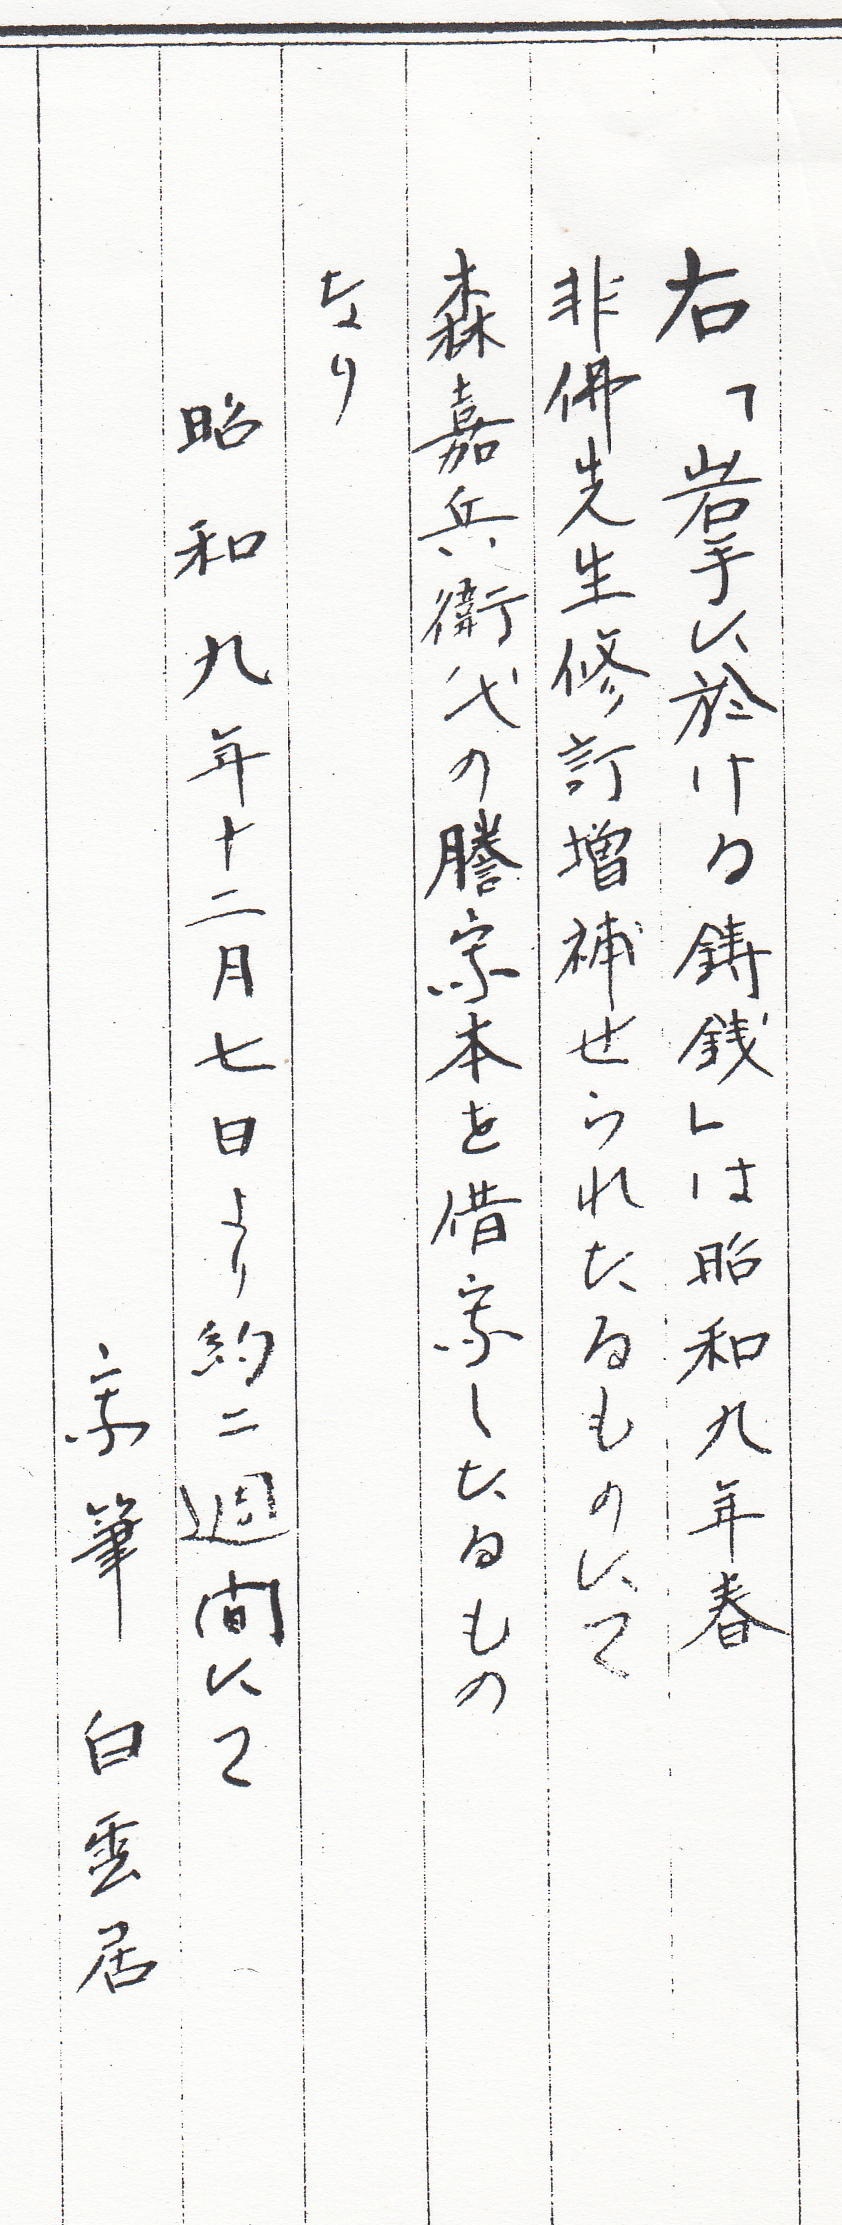 右「岩手に於ける鋳銭」は昭和九年春
非佛先生修訂増補せられたるものにて
森嘉兵衛氏の謄写本を借写したるもの
なり
昭和九年十二月七日より約二週間にて
写筆 白雲居